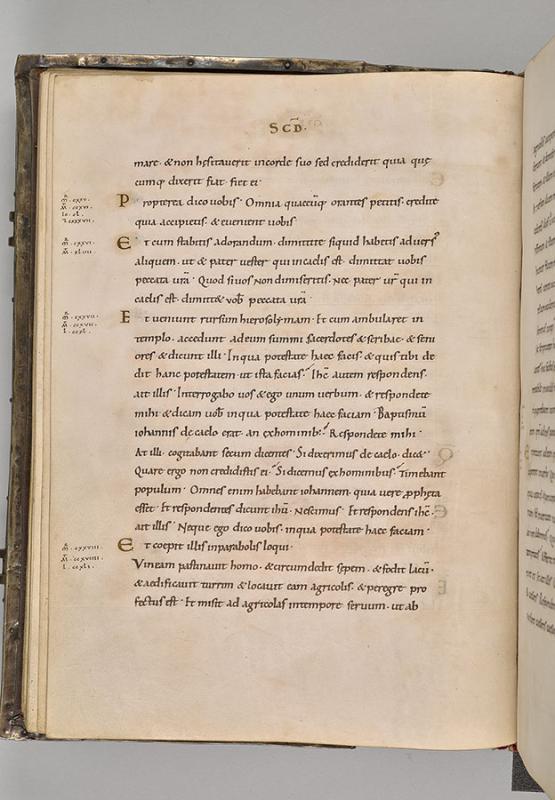 SCD̄·
mare· & non hęsitauerit incorde suo sed crediderit quia quę
cumq; dixerit fiat· fiet ei·
Propterea dico uobis· Omnia quaecūq; orantes petitis· credite
quia accipietis· & euenient uobis·
Et cum stabitis adorandum· dimittite siquid habetis aduersꝰ
aliquem· ut & pater uester qui incaelis est· dimittat uobis
peccata urā· Quod si uos non dimiseritis· Nec pater ur̄ qui in
caelis est· dimitt& uob peccata urā·
Et ueniunt rursum hierosolymam· Et cum ambularet in
templo· accedunt adeum summi sacerdotes & scribae· & seni
ores & dicunt illi· Inqua potestate haec facis· & quis tibi de
dit hanc potestatem· ut ista facias· Ihc̄ autem respondens·
ait illis· Interrogabo uos & ego unum uerbum· & respondete
mihi· & dicam uob inqua potestate haec faciam· Baptismū
iohannis de caelo erat· an exhominib;· Respondete mihi·
At illi· cogitabant secum dicentes· Si dixerimus de caelo· dic&·
Quare ergo non credidistis ei· Si dicemus exhominibus· Timebant
populum· Omnes enim habebant iohannem· quia uere ꝓpheta
esset· Et respondentes dicunt ihū· Nescimus· Et respondens ihc̄·
ait illis· Neque ego dico uobis· inqua potestate haec faciam·
Et coepit illis inparabolis loqui·
Vineam pastinauit homo· & circumdedit sepem· & fodit lacū·
& aedificauit turrim & locauit eam agricolis· & peregre pro
fectus est· Et misit ad agricolas intempore seruum· ut ab